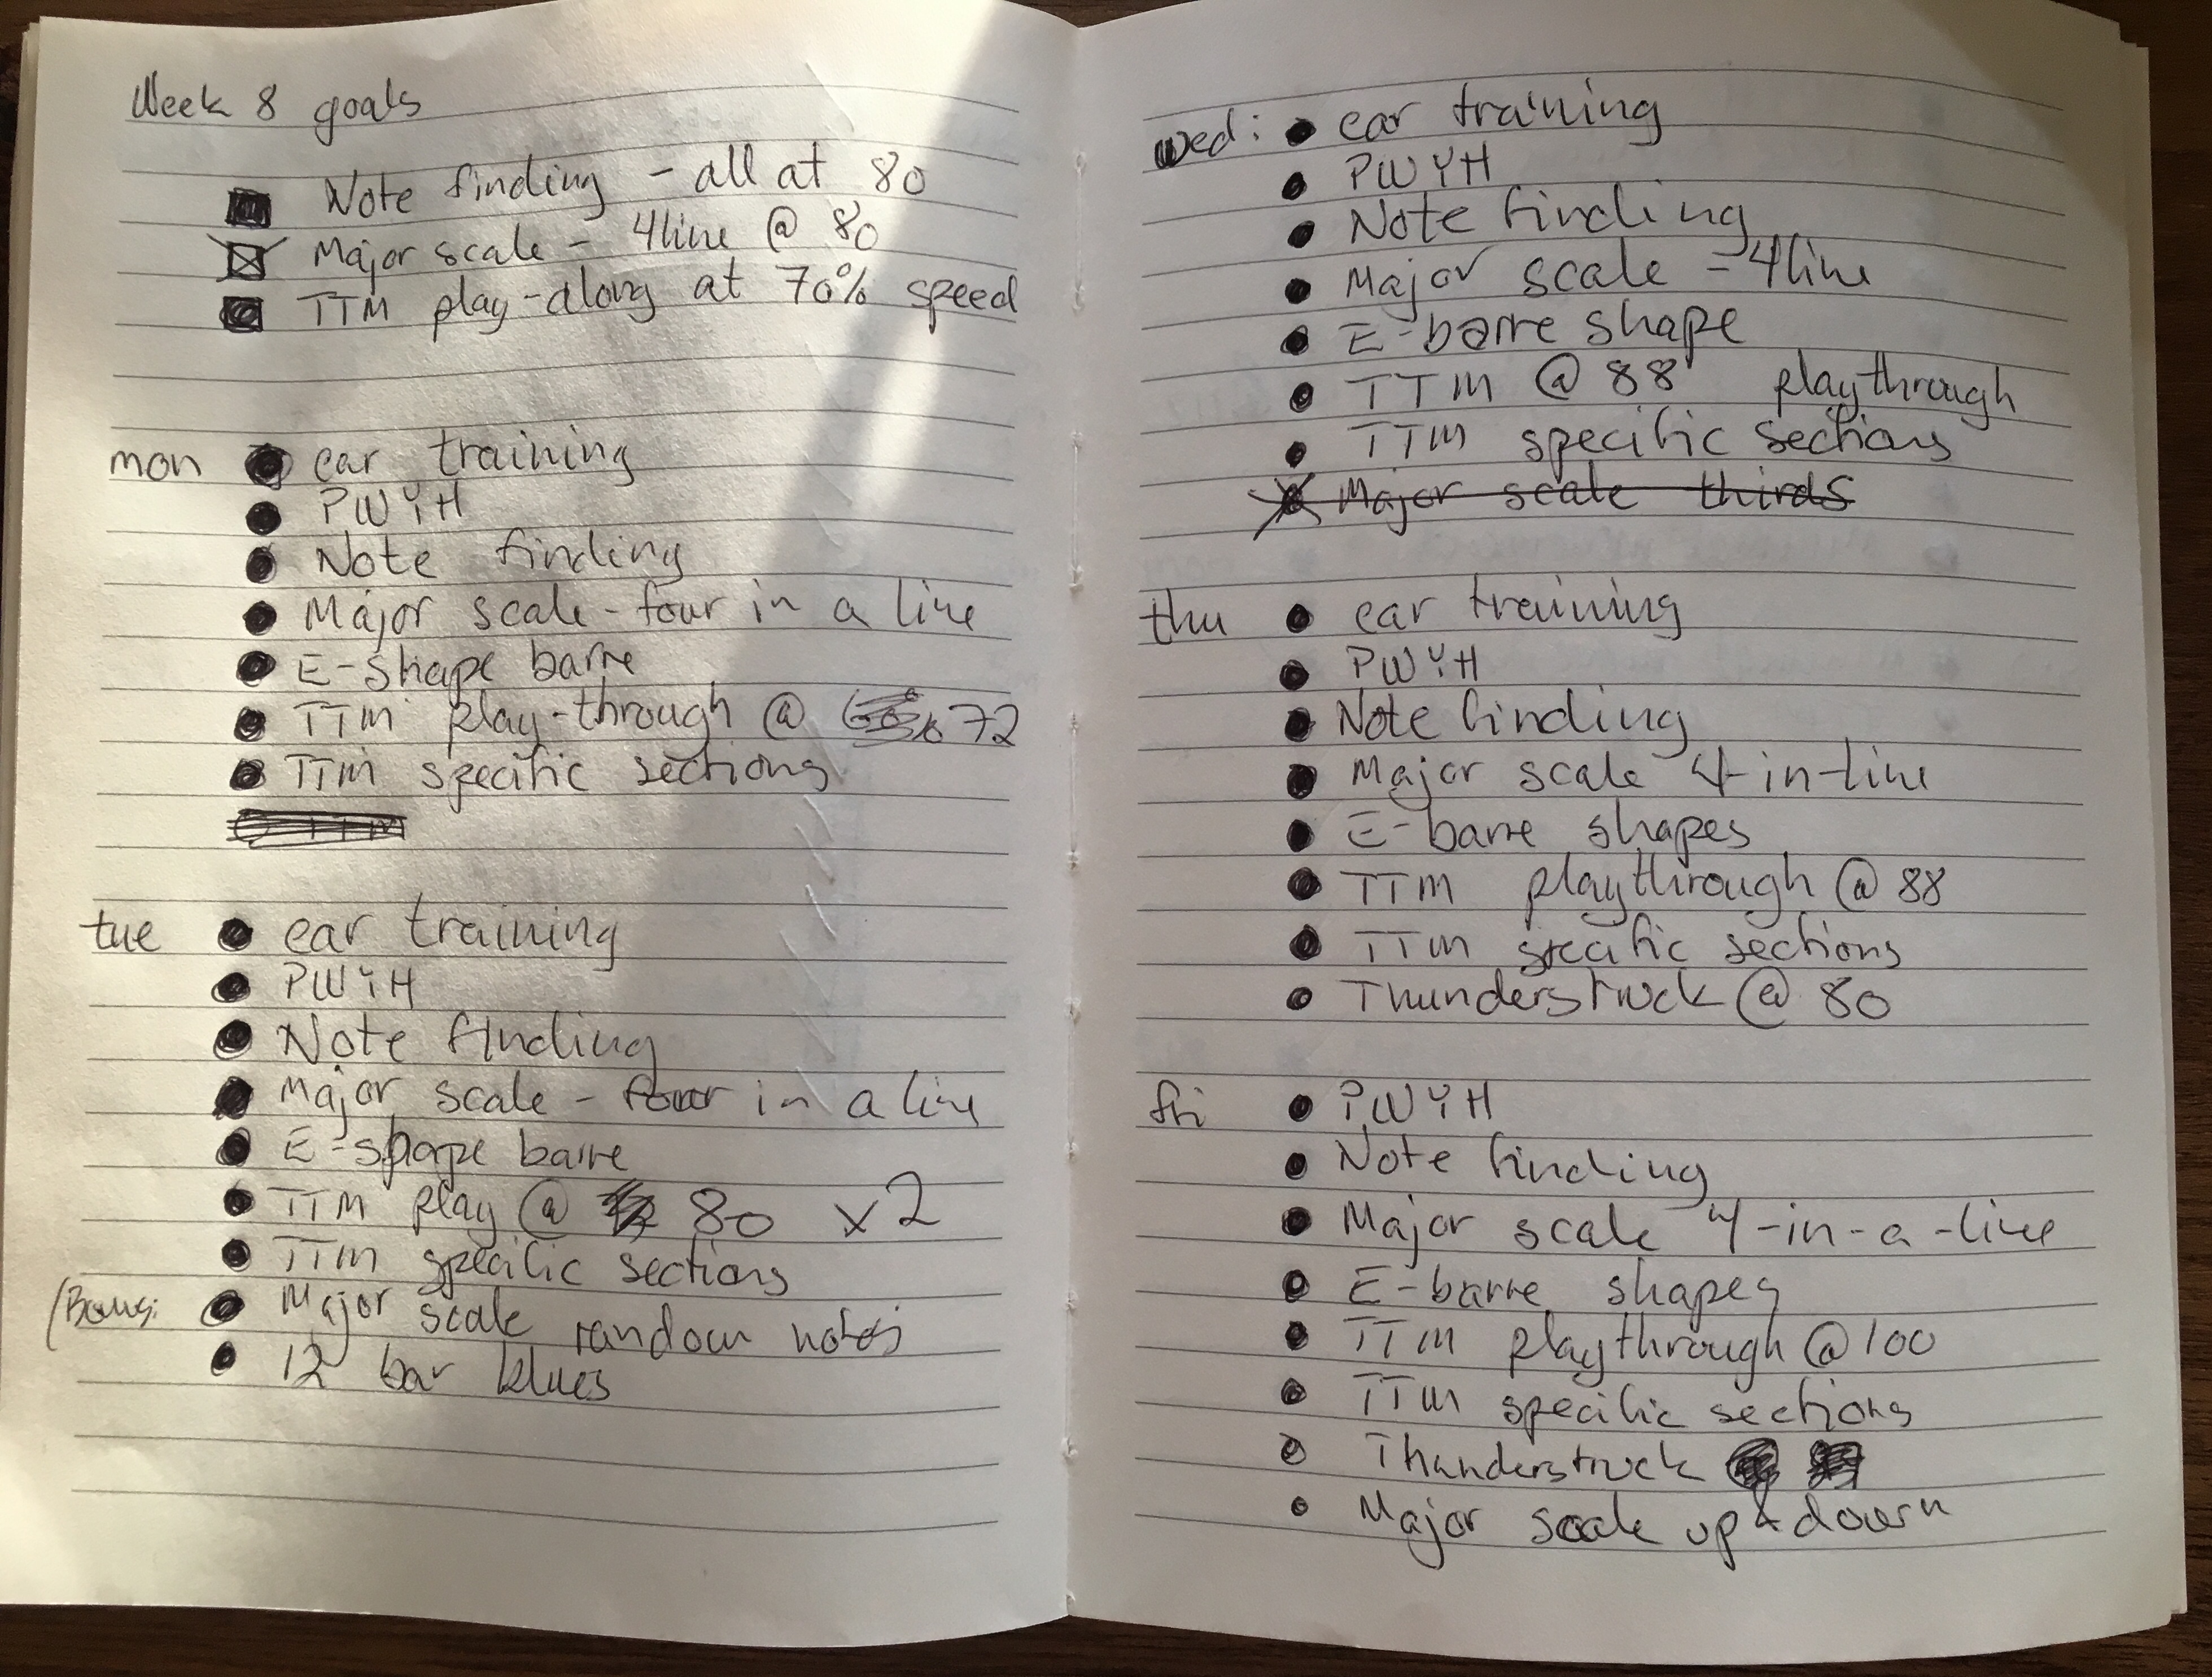 Week 8 goals
Note finding - all at 80
Major scale - 4line @ 80
TTM play-along at 70% speed
mon ear training
PWYH
Note finding
Major scale - four in a line
E-shape barre
TTM play-through @ 72
TTM specific sections
tue ear training
PWYH
Note finding
Major scale - four in a line
E-shape barre
TTM play @ 80 x2
TTM specific sections
(Bonus: Major scale random notes
12 bar blues
wed: ear training
PWYH
Note finding
Major scale - 4line
E-barre shape
TTM @ 88 playthrough
TTM specific sections
Major scale thirds
thu ear training
PWYH
Note finding
Major scale 4-in-line
E-barre shapes
TTM playthrough @ 88
TTM specific sections
Thunderstruck @ 80
fri PWYH
Note finding
Major scale 4-in-a-line
E-barre shapes
TTM playthrough @ 100
TTM specific sections
Thunderstruck
Major scale up & down